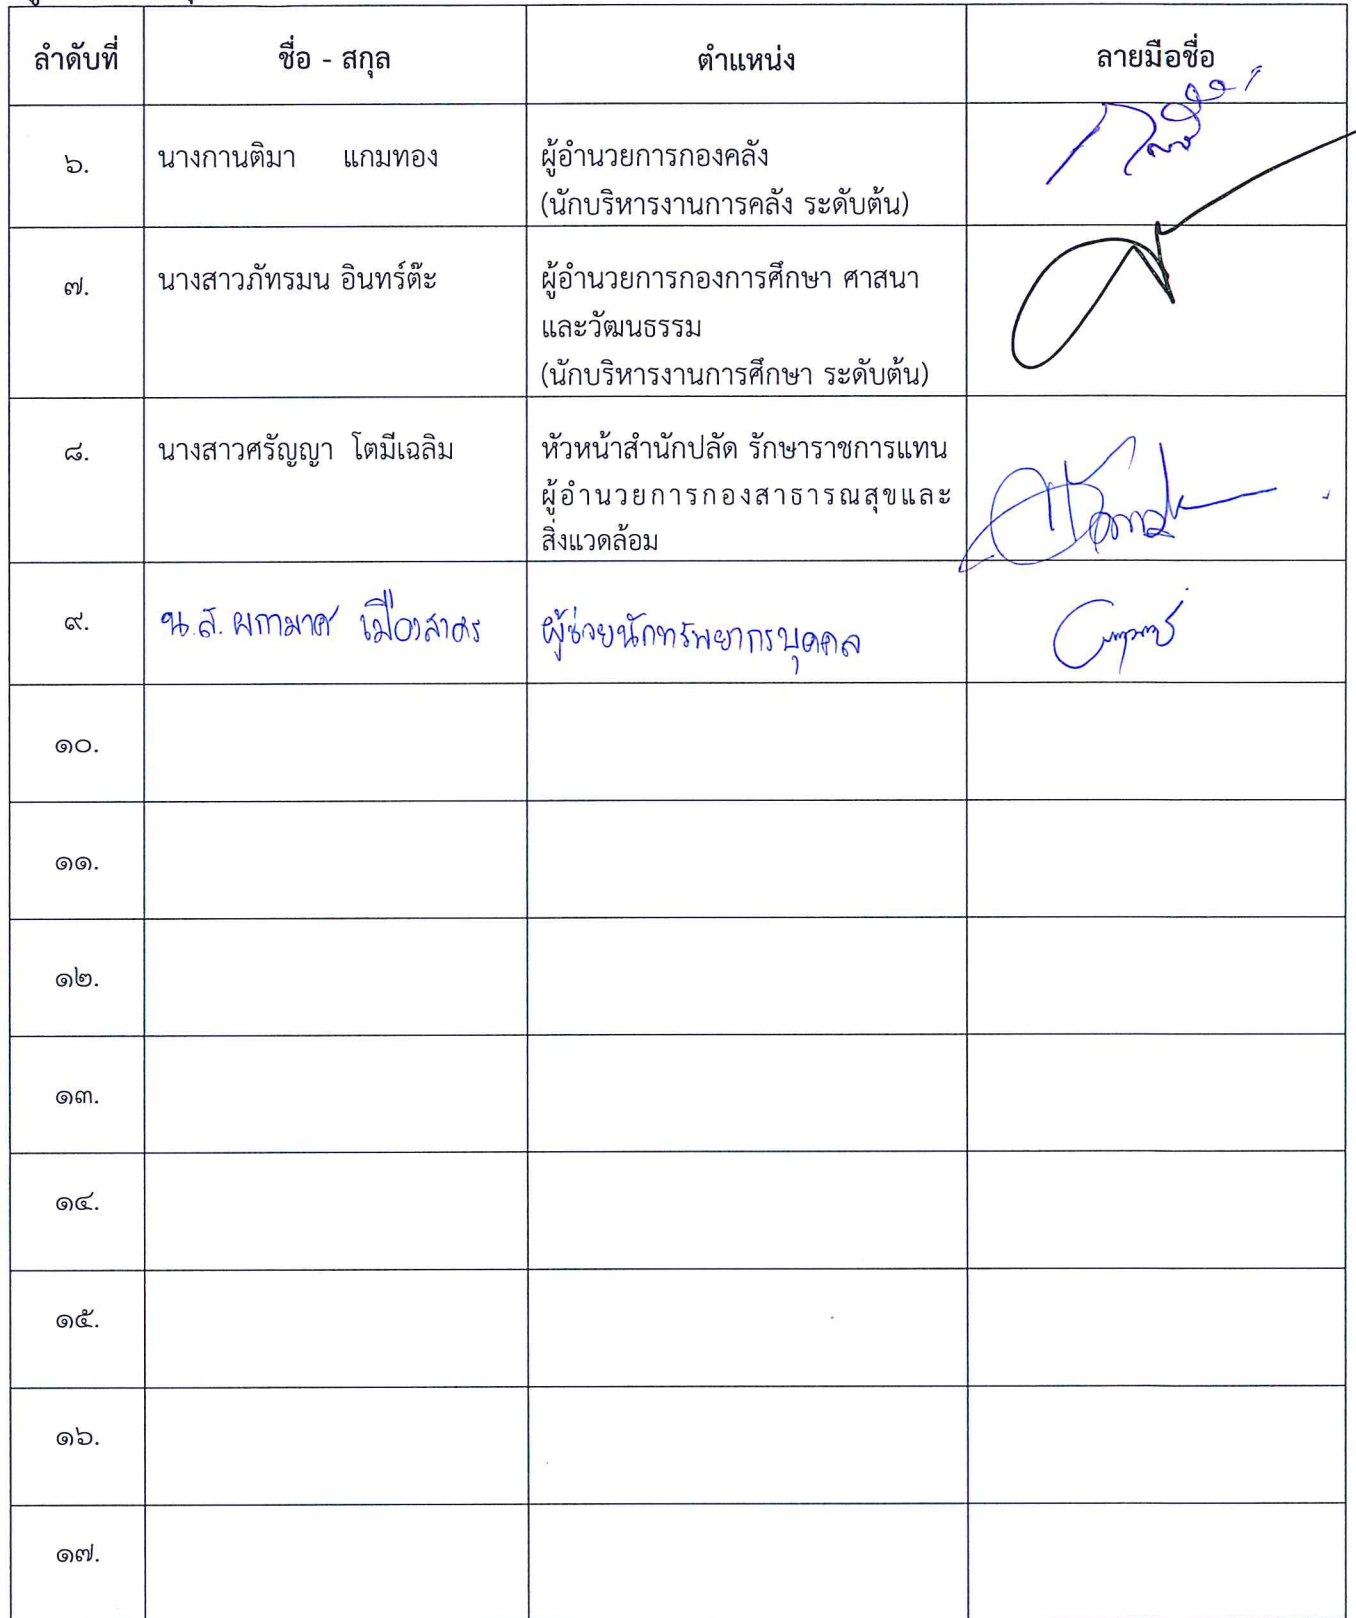 ลำดับที่ ชื่อ - สกุล ตำแหน่ง ลายมือชื่อ
๖. นางกานติมา แกมทอง ผู้อำนวยการกองคลัง
(นักบริหารงานการคลัง ระดับต้น)
๗. นางสาวภัทรมน อินทร์ต๊ะ ผู้อำนวยการกองการศึกษา ศาสนา
และวัฒนธรรม
(นักบริหารงานการศึกษา ระดับต้น)
๘. นางสาวศรัญญา โตมีเฉลิม หัวหน้าสำนักปลัด รักษาราชการแทน
ผู้อำนวยการกองสาธารณสุขและ
สิ่งแวดล้อม
๙. น.ส. ผกามาศ เมืองสาคร ผู้ช่วยนักทรัพยากรบุคคล
๑๐.
๑๑.
๑๒.
๑๓.
๑๔.
๑๕.
๑๖.
๑๗.